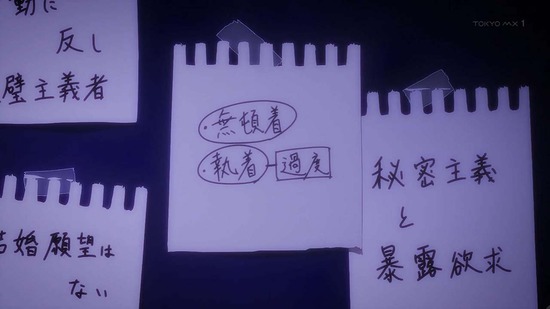 TOKYO MX 1
動に
反し
璧主義者
・無頓着
・執着 過度
秘密主義
と
暴露欲求
結婚願望は
ない